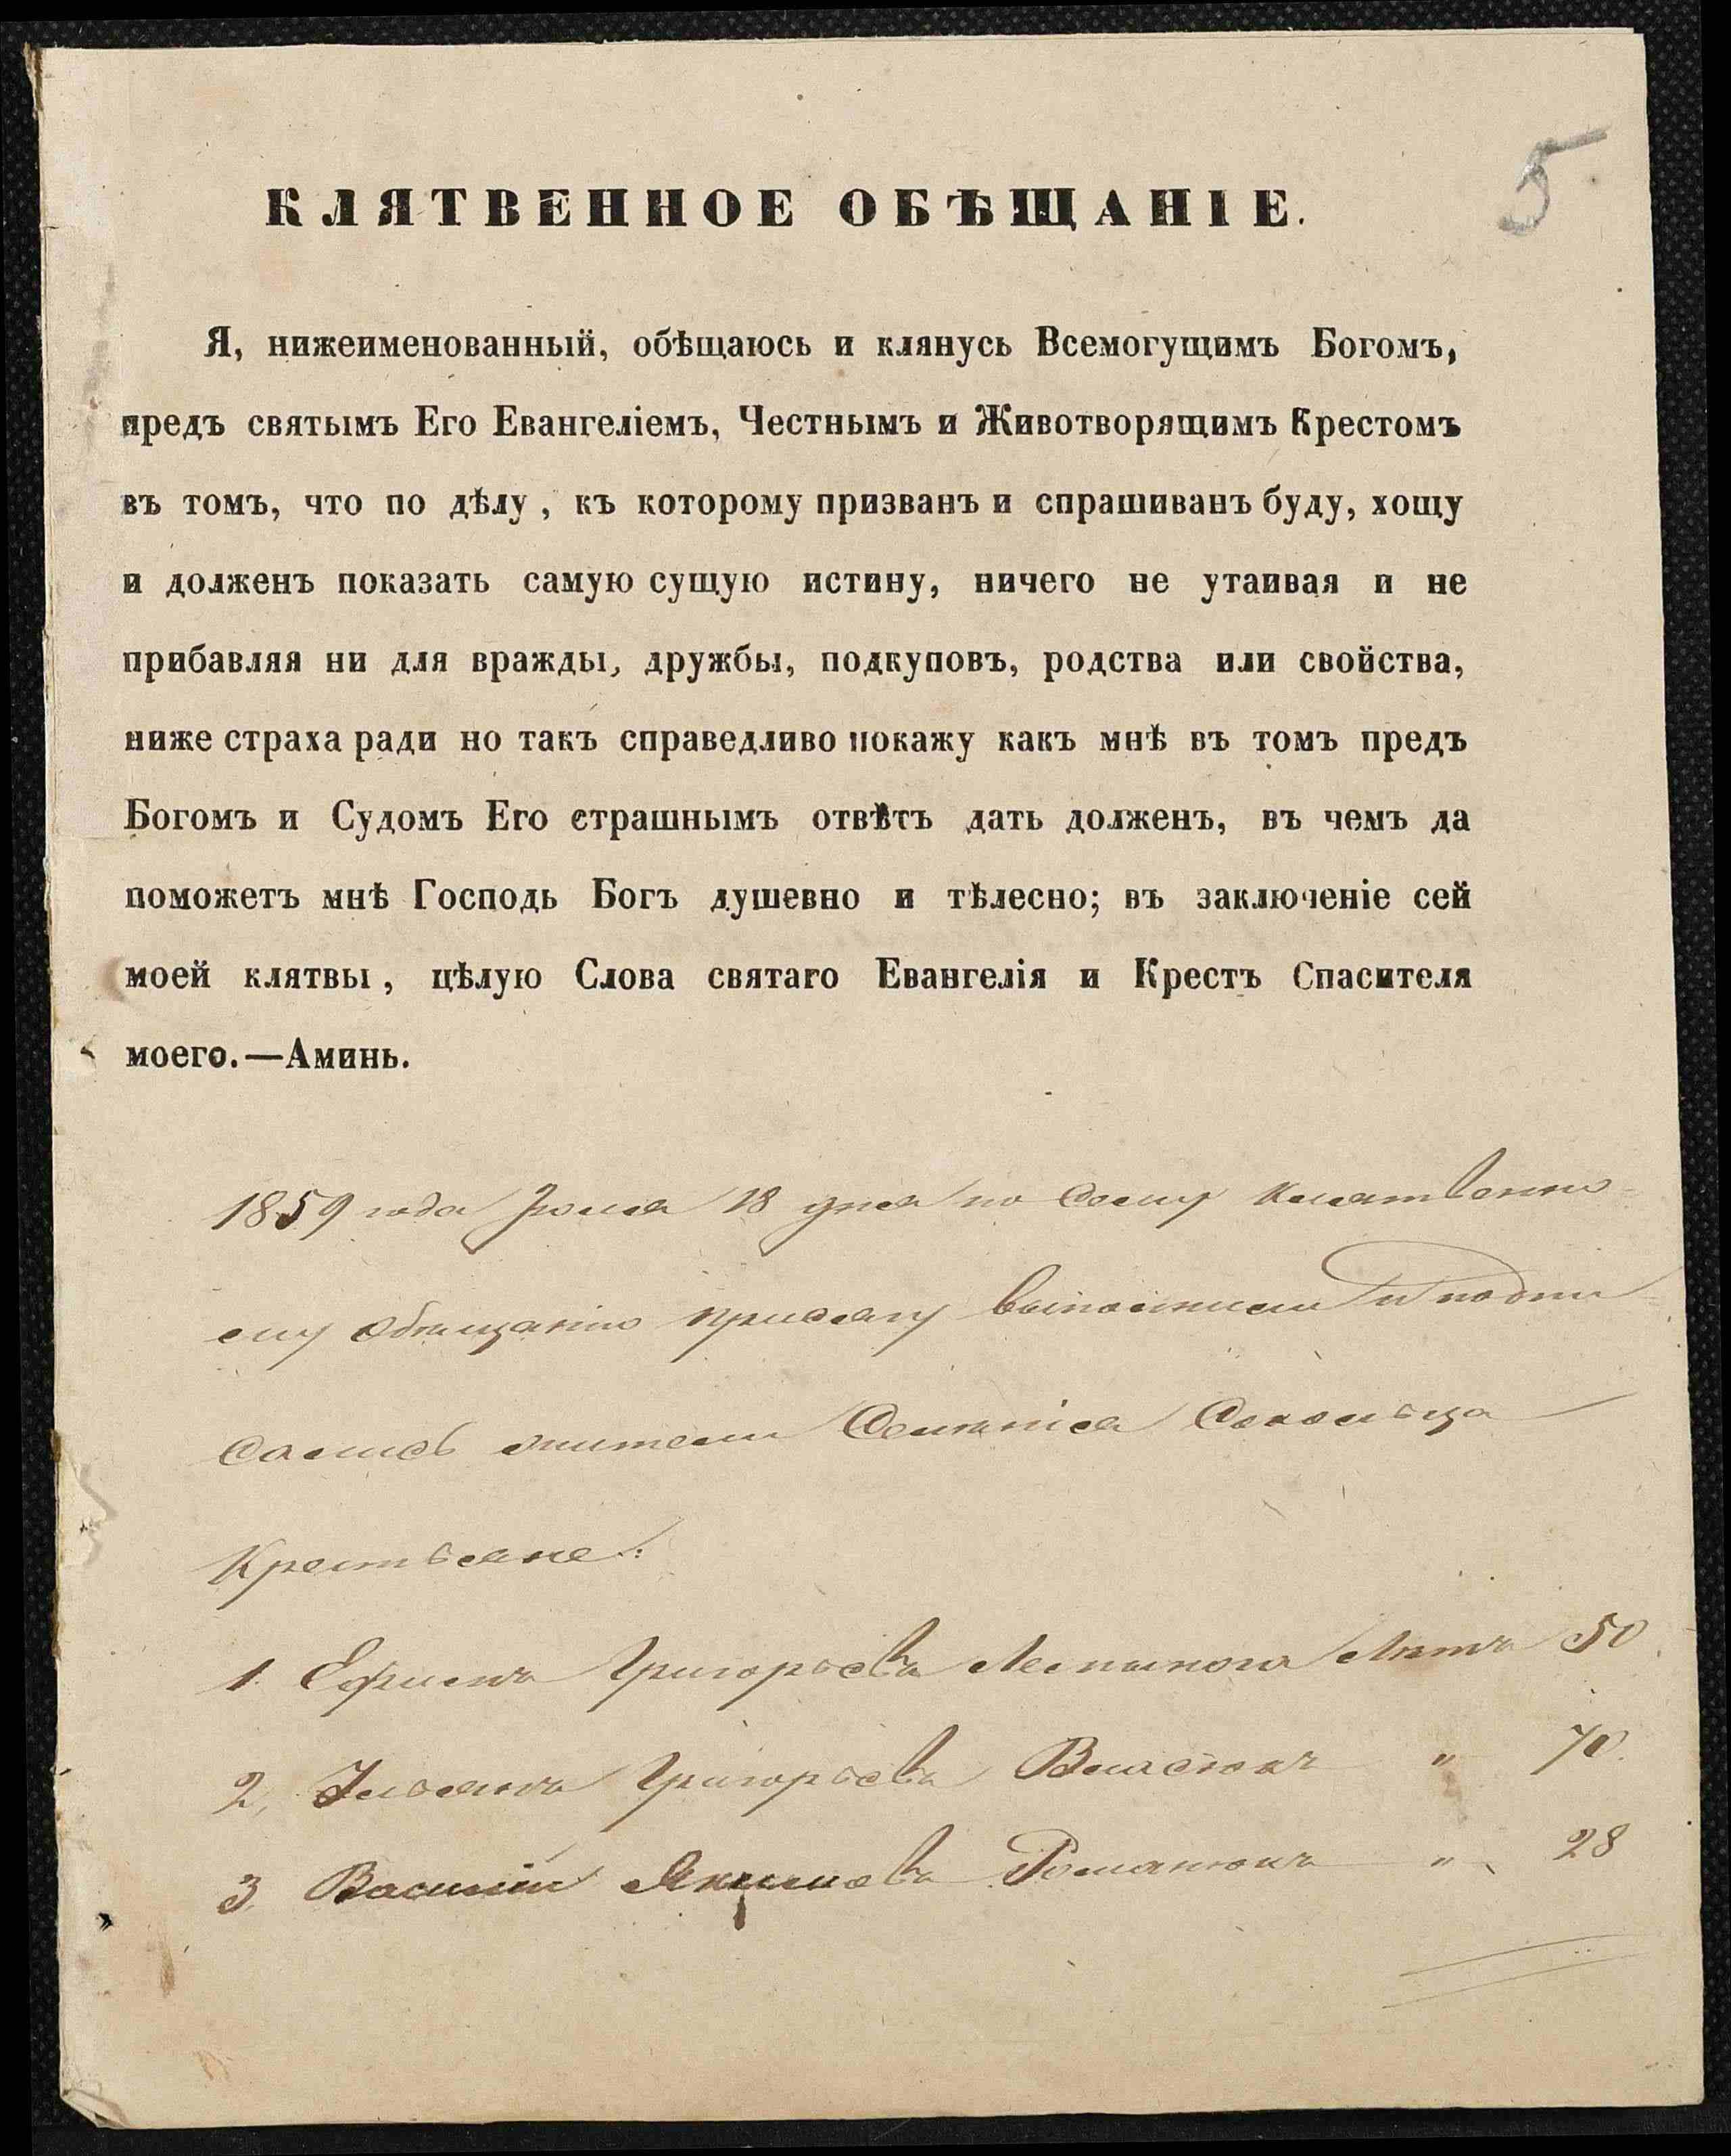 5
КЛЯТВЕННОЕ ОБѢЩАНІЕ.
Я, нижеименованный, обѣщаюсь и клянусь Всемогущимъ Богомъ,
предъ святымъ Его Евангеліемъ, Честнымъ и Животворящимъ Крестомъ
въ томъ, что по дѣлу, къ которому призванъ и спрашиванъ буду, хощу
и долженъ показать самую сущую истину, ничего не утаивая и не
прибавляя ни для вражды, дружбы, подкуповъ, родства или свойства,
ниже страха ради но такъ справедливо покажу какъ мнѣ въ томъ предъ
Богомъ и Судомъ Его страшнымъ отвѣтъ дать долженъ, въ чемъ да
поможетъ мнѣ Господь Богъ душевно и тѣлесно; въ заключеніе сей
моей клятвы, цѣлую Слова святаго Евангелія и Крестъ Спасителя
моего.—Аминь.
1859 года Іюля 18 дня по сему клятвенно-
му обѣщанію присягу выполнили и подпи-
сались жители Селенія Сокольца
Крестьяне:
1. Ефимъ Григорьевъ лѣтъ 50
2, Ульянъ Григорьевъ Власюкъ " 70.
3, Василій Якимовъ Романюкъ " 28